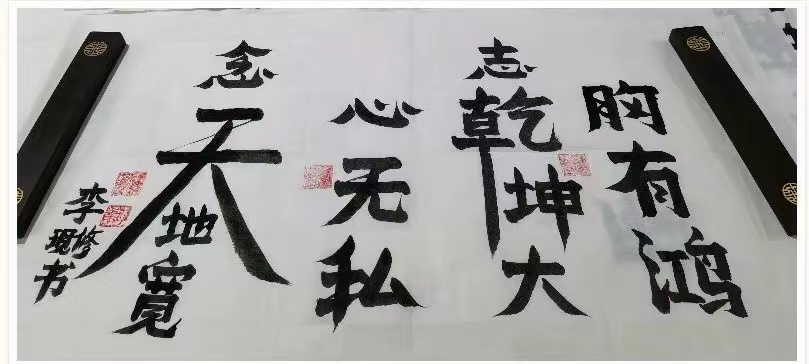 胸有鸿
志乾坤大
心无私
念天地宽
李修现书